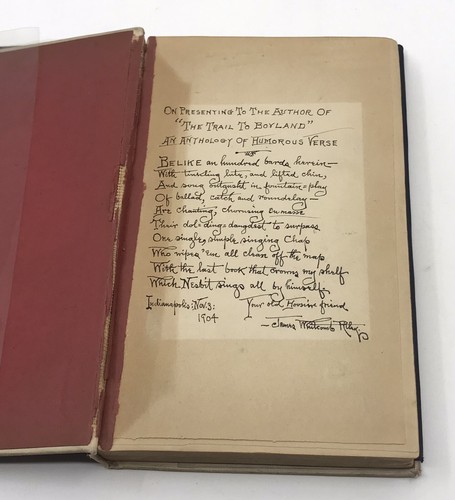 On Presenting To The Author Of
"The Trail To Boyland"
An Anthology Of Humorous Verse
Belike an hundred bards herein—
With tinkling lute, and lifted chin,
And song outgusht in fountain-play
Of ballad, catch and roundelay—
Are chanting, chorusing en masse
Their dol-dings-dangdest to surpass
One single, simple, singing Chap
Who wipes 'em all clean off the map
With the last book that crowns my shelf
Which Nesbit sings all by himself.
Indianapolis: Nov. 3: Your old Hoosier friend
1904 — James Whitcomb Riley.